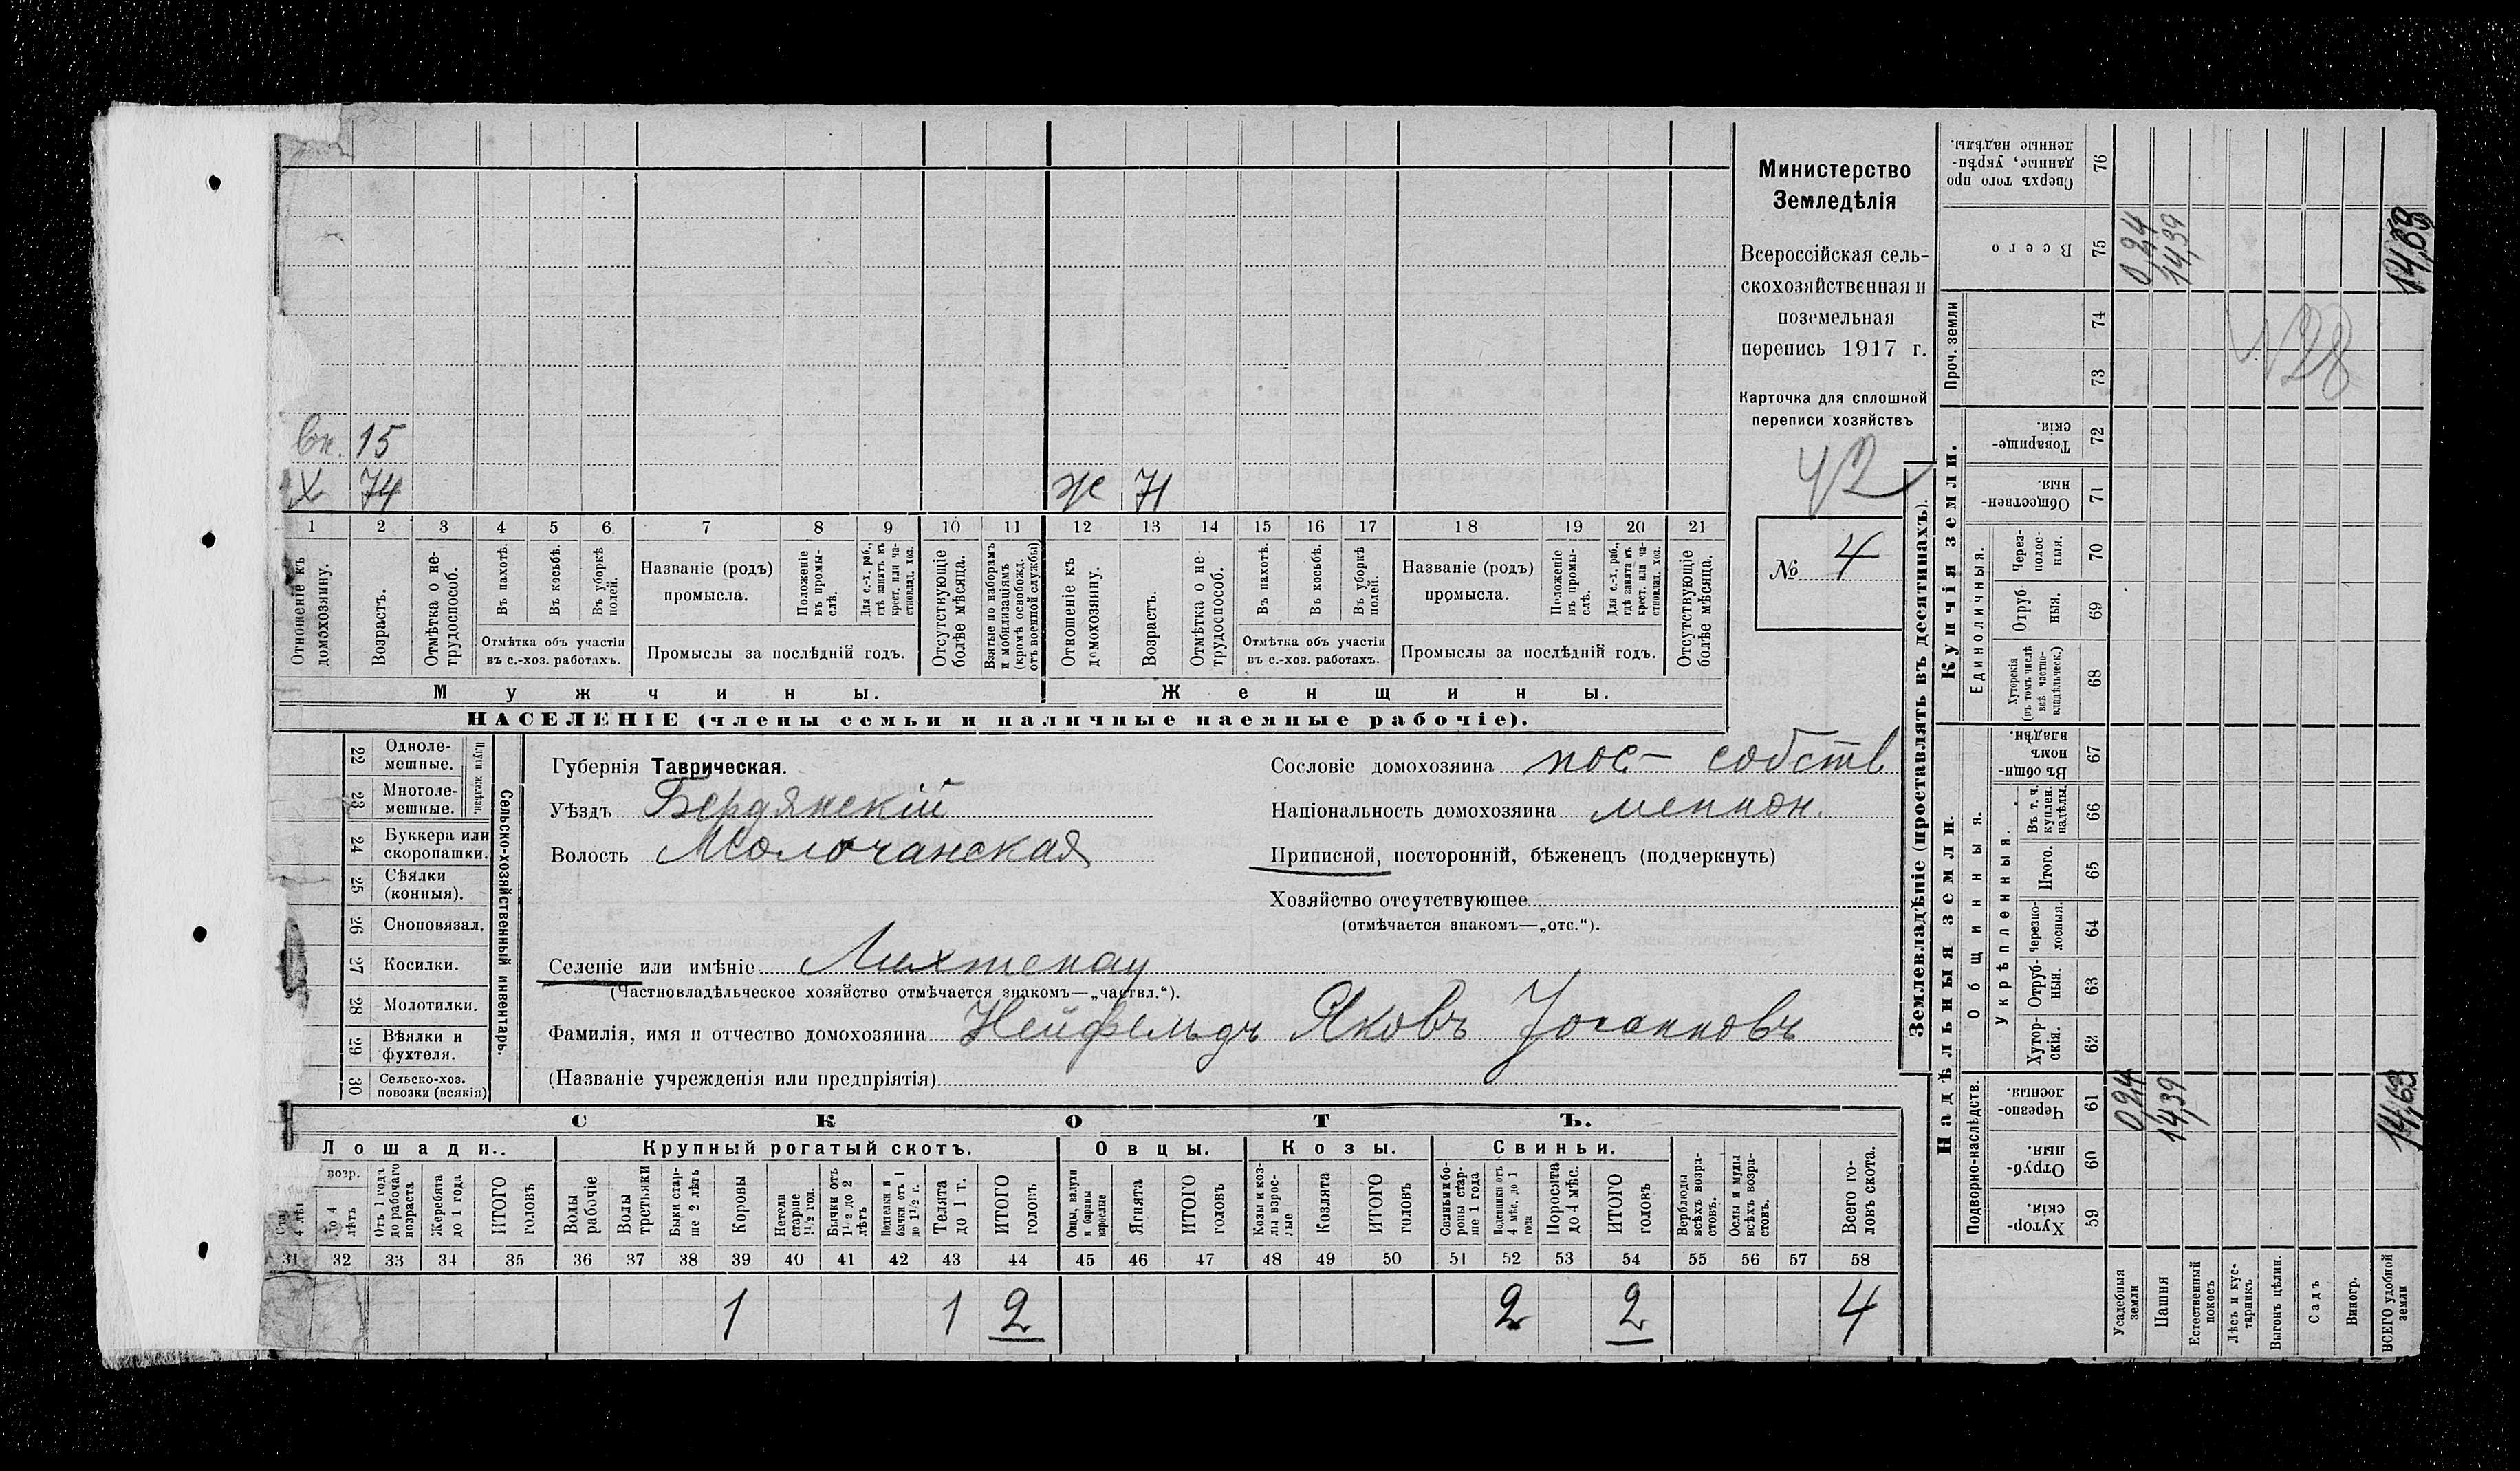 Министерство
Земледѣлія
Всероссійская сель-
скохозяйственная и
поземельная
перепись 1917 г.
Карточка для сплошной
переписи хозяйствъ
42
№ 4
Вн. 15
Х 74 Ж 71
1 2 3 4 5 6 7 8 9 10 11 12 13 14 15 16 17 18 19 20 21
Отношеніе къ домохозяину.
Возрастъ.
Отмѣтка о не-трудоспособ.
Въ пахотѣ.
Въ косьбѣ.
Въ уборкѣ полей.
Отмѣтка объ участіи въ с.-хоз. работахъ.
Названіе (родъ) промысла.
Положеніе въ промы-слѣ.
Для с.-х. раб., гдѣ занятъ въ крест. или ча-стновлад. хоз.
Промыслы за послѣдній годъ.
Отсутствующіе болѣе мѣсяца.
Взятые по наборамъ и мобилизаціямъ (кромѣ освобожд. отъ военной службы)
Отношеніе къ домохозяину.
Возрастъ.
Отмѣтка о не-трудоспособ.
Въ пахотѣ.
Въ косьбѣ.
Въ уборкѣ полей.
Отмѣтка объ участіи въ с.-хоз. работахъ.
Названіе (родъ) промысла.
Положеніе въ промы-слѣ.
Для с.-х. раб., гдѣ занята въ крест. или ча-стновлад. хоз.
Промыслы за послѣдній годъ.
Отсутствующіе болѣе мѣсяца.
Мужчины. Женщины.
НАСЕЛЕНІЕ (члены семьи и наличные наемные рабочіе).
Сельско-хозяйственный инвентарь.
Плуги желѣзн.
22 Одноле-мешные.
23 Многоле-мешные.
24 Буккера или скоропашки.
25 Сѣялки (конныя).
26 Сноповязал.
27 Косилки.
28 Молотилки.
29 Вѣялки и фухтеля.
30 Сельско-хоз. повозки (всякія)
Губернія Таврическая.
Уѣздъ Бердянскій
Волость Молочанская
Сословіе домохозяина пос- собств
Національность домохозяина меннон.
Приписной, посторонній, бѣженецъ (подчеркнуть)
Хозяйство отсутствующее
(отмѣчается знакомъ—„отс.“).
Селеніе или имѣніе Лихтенау
(Частновладѣльческое хозяйство отмѣчается знакомъ—„частвл.“).
Фамилія, имя и отчество домохозяина Нейфельдъ Яковъ Іоганновъ
(Названіе учрежденія или предпріятія)
СКОТЪ.
Лошади. Крупный рогатый скотъ. Овцы. Козы. Свиньи.
возр.
до 4 лѣтъ
Отъ 1 года до рабочаго возраста
Жеребята до 1 года
ИТОГО головъ
Волы рабочіе
Волы третьяки
Быки стар-ше 2 лѣтъ
Коровы
Нетели старше 1½ год.
Бычки отъ 1½ до 2 лѣтъ
Подтелки и бычки отъ 1 до 1½ г.
Телята до 1 г.
ИТОГО головъ
Овцы, валухи и бараны взрослые
Ягнята
ИТОГО головъ
Козы и коз-лы взрос-лые
Козлята
ИТОГО головъ
Свиньи и бо-ровы стар-ше 1 года
Подсвинки отъ 4 мѣс. до 1 года
Поросята до 4 мѣс.
ИТОГО головъ
Верблюды всѣхъ возра-стовъ.
Ослы и мулы всѣхъ возра-стовъ.
Всего го-ловъ скота.
31 32 33 34 35 36 37 38 39 40 41 42 43 44 45 46 47 48 49 50 51 52 53 54 55 56 57 58
1 1 2 2 2 4
Землевладѣніе (проставлять въ десятинахъ).
Надѣльныя земли. Купчія земли. Проч. земли
Подворно-наслѣдств. Общинныя. Укрѣпленныя. Единоличныя.
59 Хутор-скія.
60 Отруб-ныя.
61 Черезпо-лосныя.
62 Хутор-скія.
63 Отруб-ныя.
64 Черезпо-лосныя.
65 Итого.
66 Въ т. ч. куплен. надѣлы.
67 Въ общин-номъ владѣн.
68 Хуторскія (въ томъ числѣ всѣ частно-владѣльческ.)
69 Отруб ныя.
70 Через-полос-ныя.
71 Обществен-ныя.
72 Товарище-скія.
73
74
75 Всего
76 Сверхъ того про данные, укрѣп-ленные надѣлы.
Усадебныя земли 0,24 0,24
Пашня 14,39 14,39
Естественный покосъ
Лѣсъ и кус-тарникъ
Выгонъ цѣлин.
Садъ
Виногр.
ВСЕГО удобной земли 14,63
№28